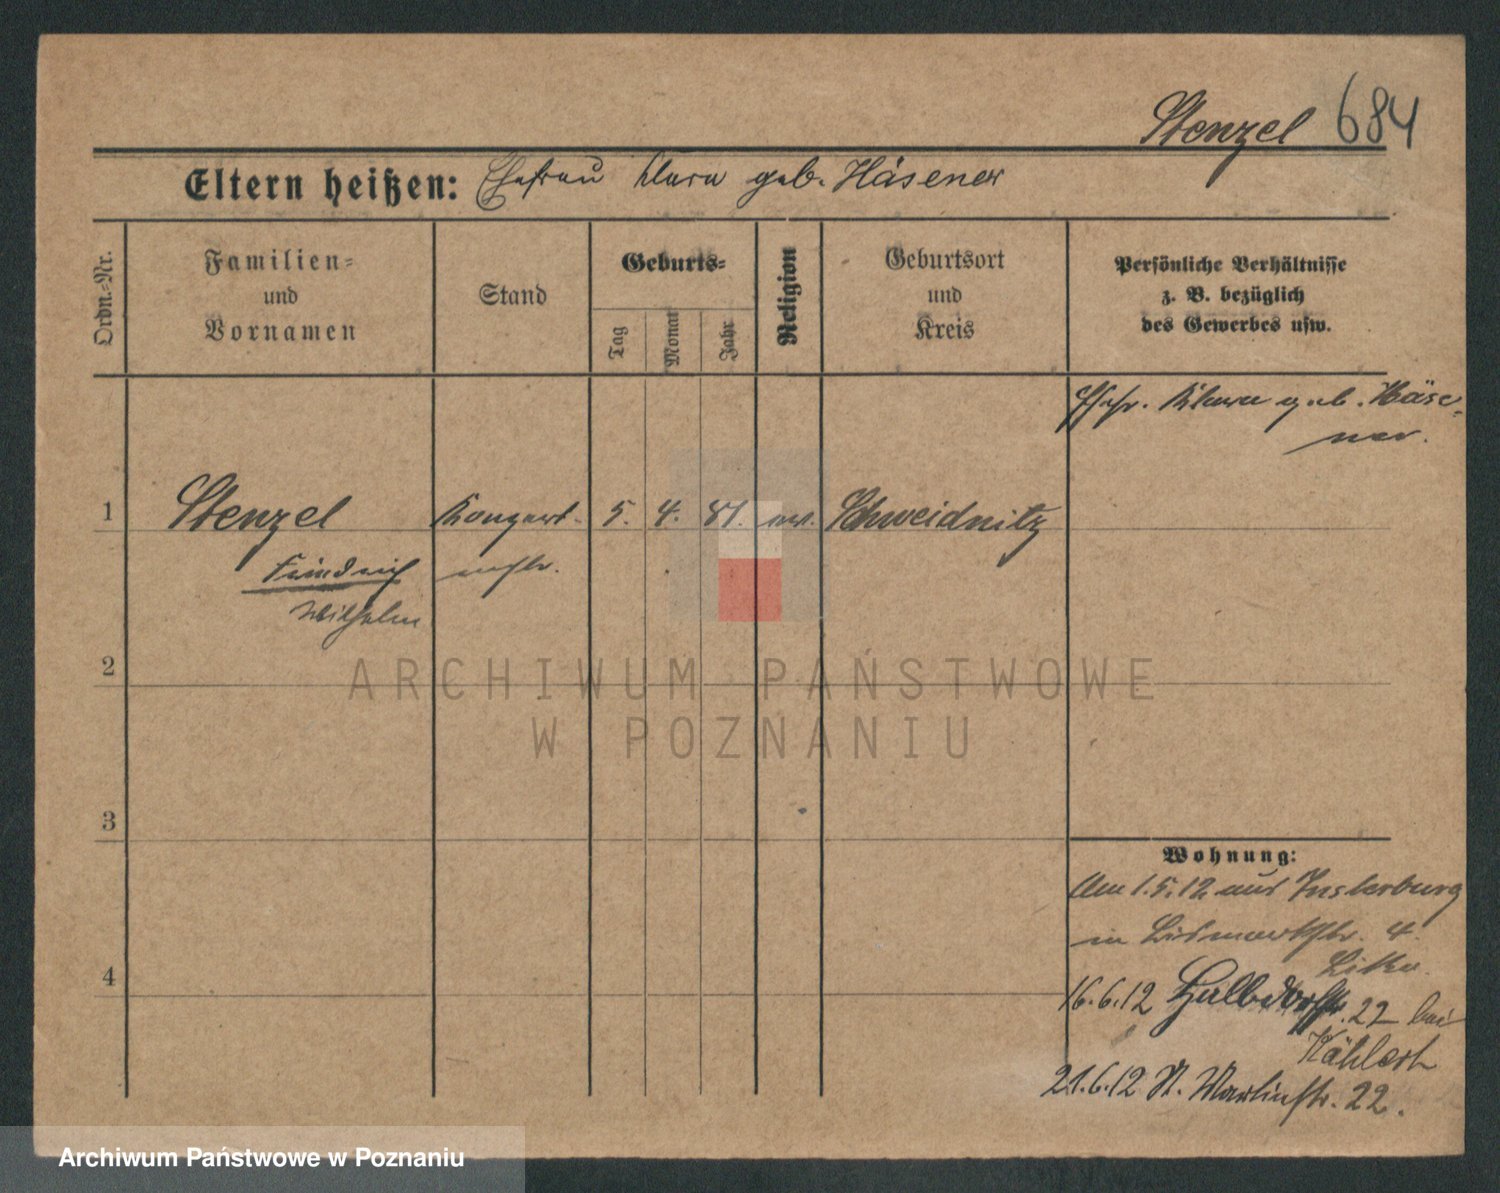 Stenzel 684
Eltern heißen: Ehefrau Klara geb. Häsener
Ordn.-Nr.
Familien-
und
Vornamen
Stand
Geburts-
Tag
Monat
Jahr
Religion
Geburtsort
und
Kreis
Persönliche Verhältnisse
z. B. bezüglich
des Gewerbes usw.
Ehefr. Klara geb. Häse-
ner.
1 Stenzel Konzert- 5. 4. 81. ev. Schweidnitz
Friedrich mstr.
Wilhelm
2
3
4
Wohnung:
Am 1.5.12 aus Insterburg
in Bismarckstr. 4.
16.6.12 Halbdorfstr. 22 bei
Kählert
21.6.12 St. Martinstr. 22.
ARCHIWUM PAŃSTWOWE
W POZNANIU
Archiwum Państwowe w Poznaniu